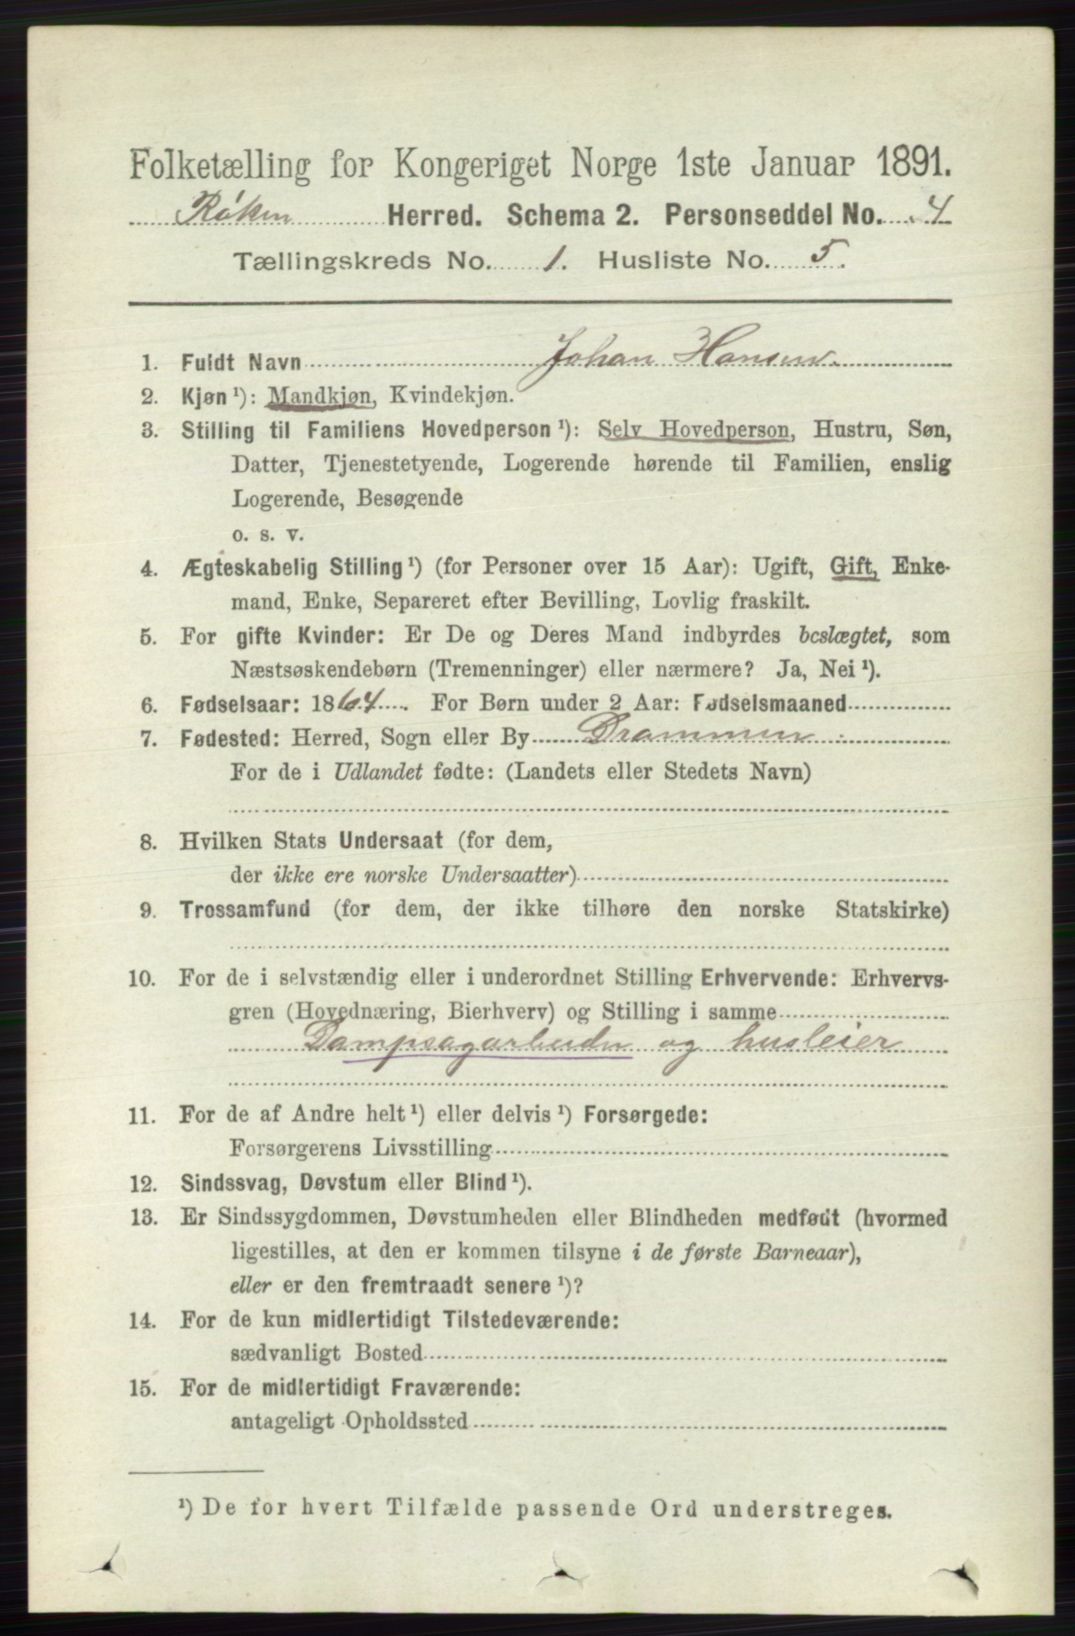 Folketælling for Kongeriget Norge 1ste Januar 1891.
Røken Herred. Schema 2. Personseddel No. 4
Tællingskreds No. 1. Husliste No. 5.
1. Fuldt Navn Johan Hansen.
2. Kjøn ¹): Mandkjøn, Kvindekjøn.
3. Stilling til Familiens Hovedperson ¹): Selv Hovedperson, Hustru, Søn,
Datter, Tjenestetyende, Logerende hørende til Familien, enslig
Logerende, Besøgende
o. s. v.
4. Ægteskabelig Stilling ¹) (for Personer over 15 Aar): Ugift, Gift, Enke-
mand, Enke, Separeret efter Bevilling, Lovlig fraskilt.
5. For gifte Kvinder: Er De og Deres Mand indbyrdes beslægtet, som
Næstsøskendebørn (Tremenninger) eller nærmere? Ja, Nei ¹).
6. Fødselsaar: 1864. For Børn under 2 Aar: Fødselsmaaned
7. Fødested: Herred, Sogn eller By Drammen
For de i Udlandet fødte: (Landets eller Stedets Navn)
8. Hvilken Stats Undersaat (for dem,
der ikke ere norske Undersaatter)
9. Trossamfund (for dem, der ikke tilhøre den norske Statskirke)
10. For de i selvstændig eller i underordnet Stilling Erhvervende: Erhvervs-
gren (Hovednæring, Bierhverv) og Stilling i samme
Dampsagarbeider og husleier
11. For de af Andre helt ¹) eller delvis ¹) Forsørgede:
Forsørgerens Livsstilling
12. Sindssvag, Døvstum eller Blind ¹).
13. Er Sindssygdommen, Døvstumheden eller Blindheden medfødt (hvormed
ligestilles, at den er kommen tilsyne i de første Barneaar),
eller er den fremtraadt senere ¹)?
14. For de kun midlertidigt Tilstedeværende:
sædvanligt Bosted
15. For de midlertidigt Fraværende:
antageligt Opholdssted
¹) De for hvert Tilfælde passende Ord understreges.